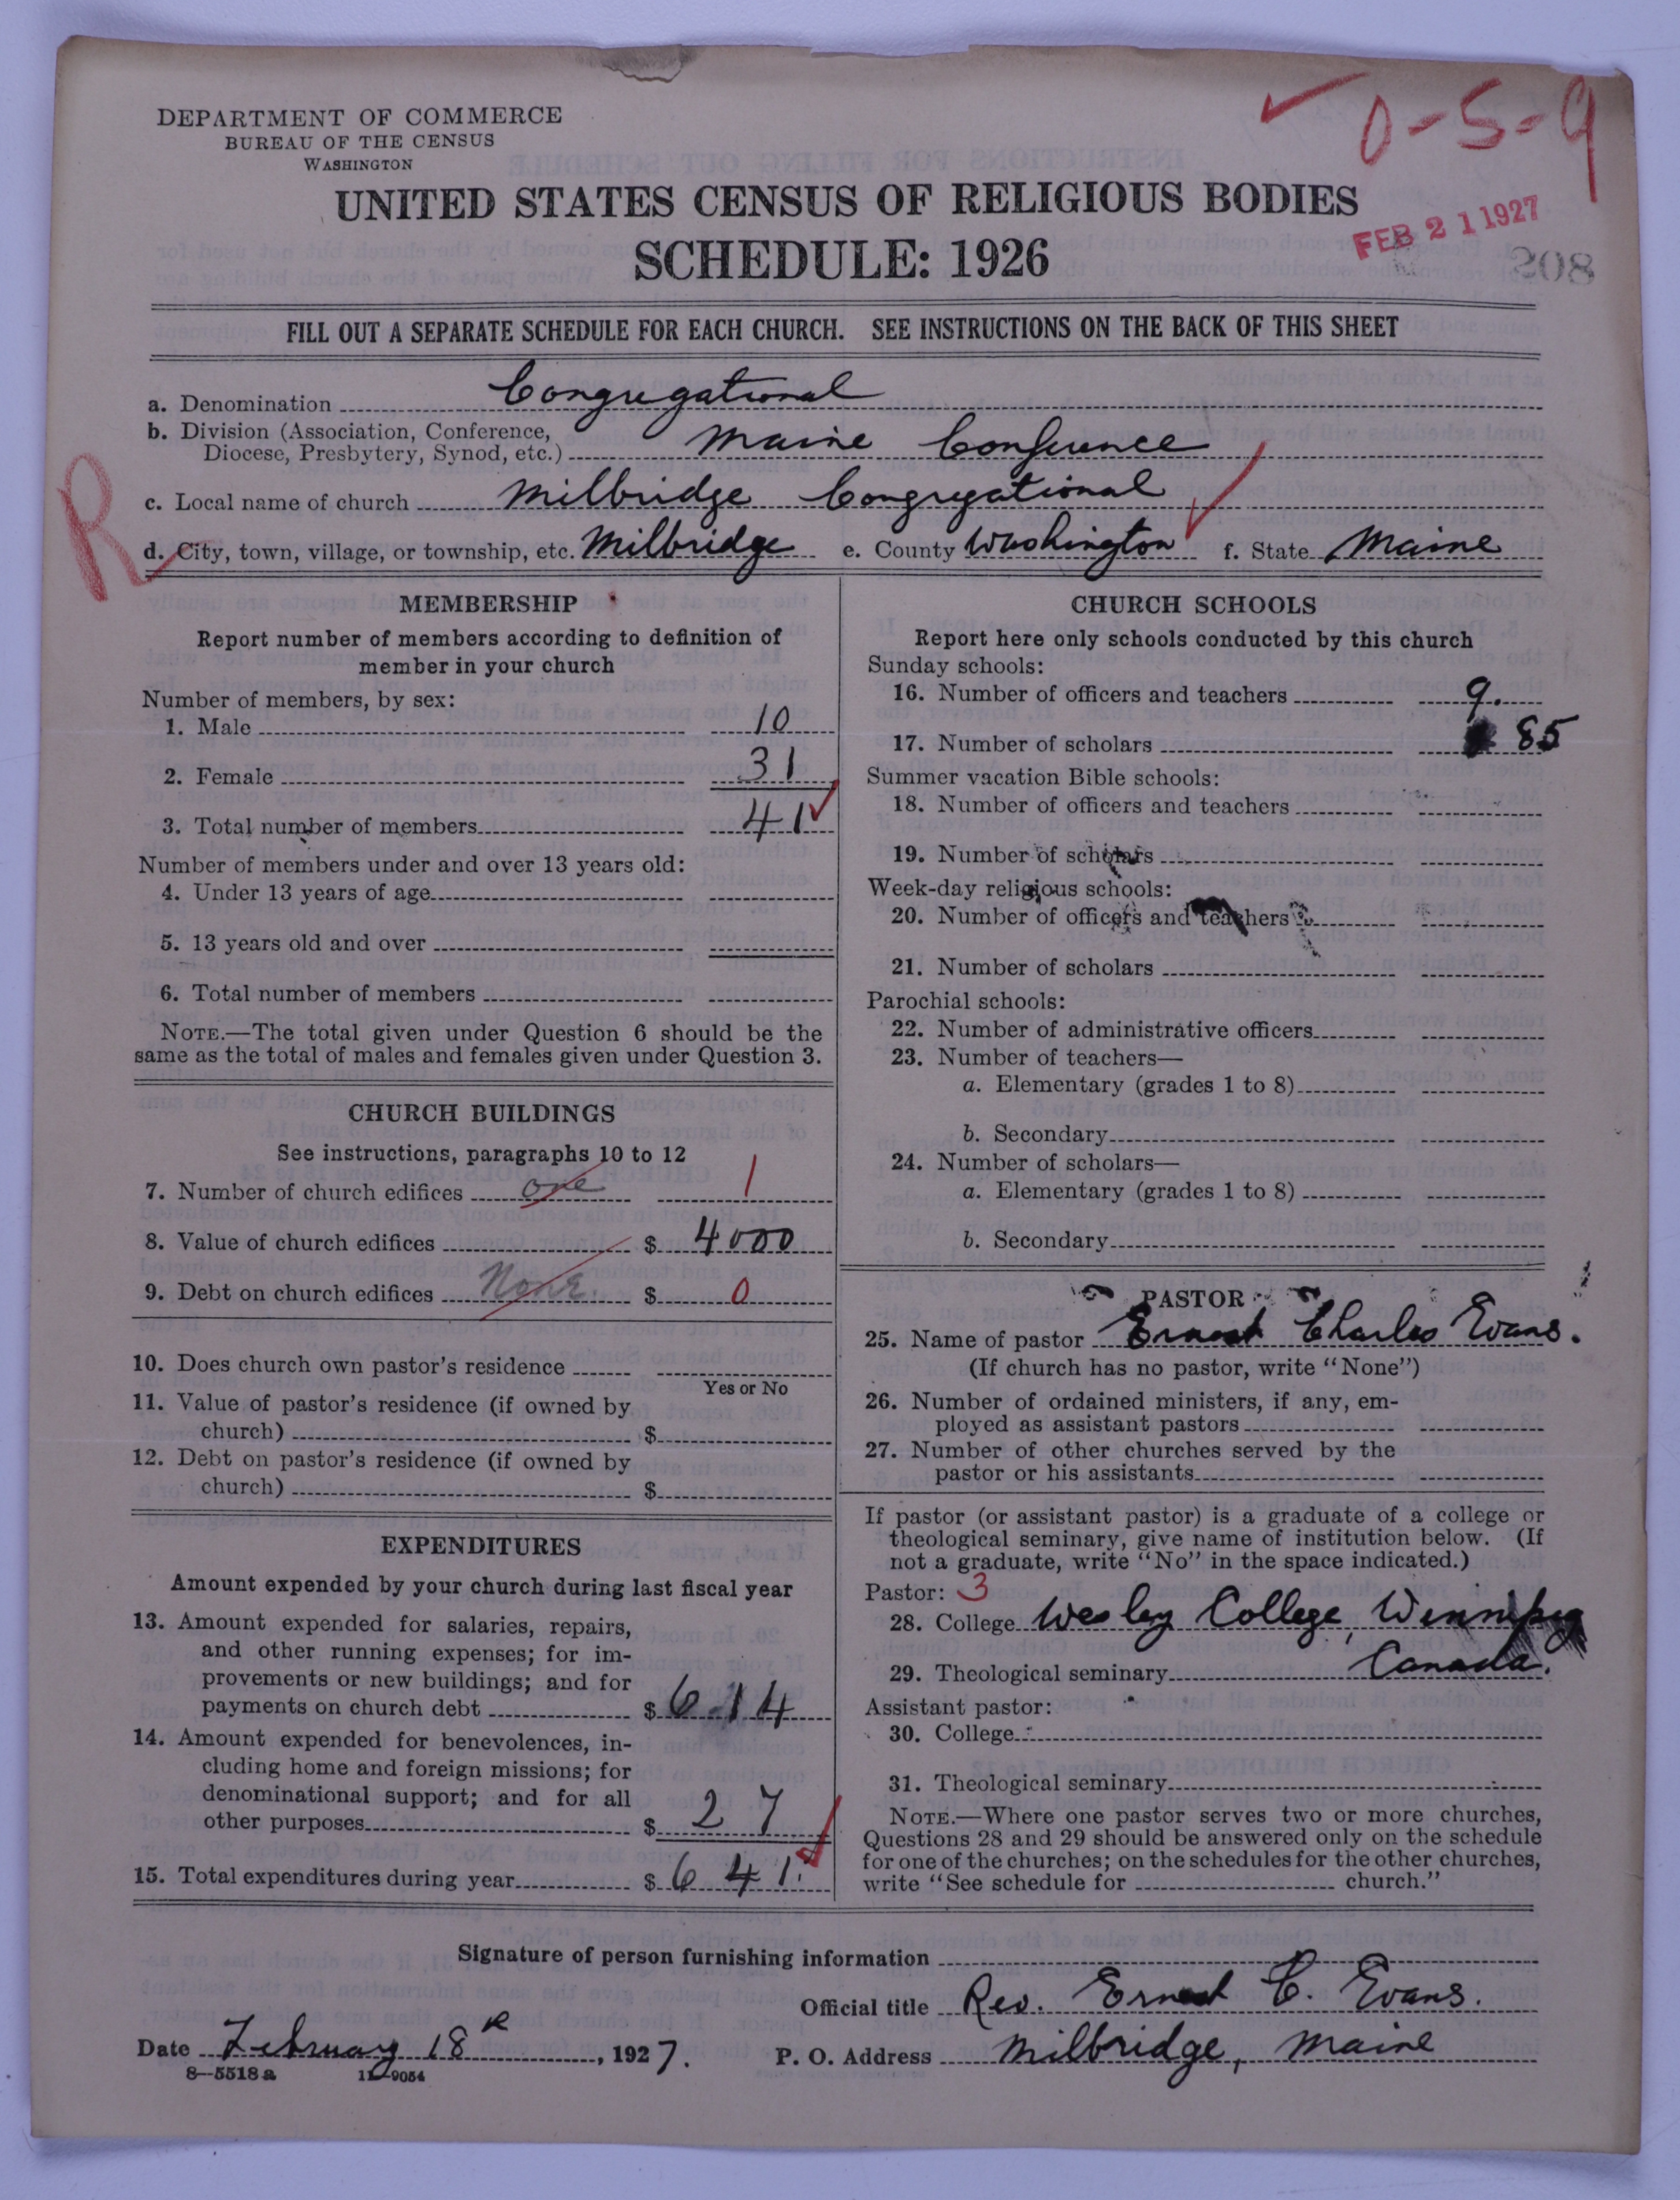 DEPARTMENT OF COMMERCE
BUREAU OF THE CENSUS
WASHINGTON
0-5-9
UNITED STATES CENSUS OF RELIGIOUS BODIES
SCHEDULE: 1926
FEB 21 1927
208
FILL OUT A SEPARATE SCHEDULE FOR EACH CHURCH. SEE INSTRUCTIONS ON THE BACK OF THIS SHEET
a. Denomination Congregational
b. Division (Association, Conference,
Diocese, Presbytery, Synod, etc.) Maine Conference
R
c. Local name of church Milbridge Congregational
d. City, town, village, or township, etc. Milbridge e. County Washington f. State Maine
MEMBERSHIP
Report number of members according to definition of
member in your church
Number of members, by sex:
1. Male 10
2. Female 31
3. Total number of members 41
Number of members under and over 13 years old:
4. Under 13 years of age
5. 13 years old and over
6. Total number of members
NOTE.—The total given under Question 6 should be the
same as the total of males and females given under Question 3.
CHURCH BUILDINGS
See instructions, paragraphs 10 to 12
7. Number of church edifices one 1
8. Value of church edifices $ 4000
9. Debt on church edifices None. $ 0
10. Does church own pastor's residence
Yes or No
11. Value of pastor's residence (if owned by
church) $
12. Debt on pastor's residence (if owned by
church) $
EXPENDITURES
Amount expended by your church during last fiscal year
13. Amount expended for salaries, repairs,
and other running expenses; for im-
provements or new buildings; and for
payments on church debt $ 614
14. Amount expended for benevolences, in-
cluding home and foreign missions; for
denominational support; and for all
other purposes $ 27
15. Total expenditures during year $ 641
CHURCH SCHOOLS
Report here only schools conducted by this church
Sunday schools:
16. Number of officers and teachers 9.
17. Number of scholars 85
Summer vacation Bible schools:
18. Number of officers and teachers
19. Number of scholars
Week-day religious schools:
20. Number of officers and teachers
21. Number of scholars
Parochial schools:
22. Number of administrative officers
23. Number of teachers—
a. Elementary (grades 1 to 8)
b. Secondary
24. Number of scholars—
a. Elementary (grades 1 to 8)
b. Secondary
PASTOR
25. Name of pastor Ernest Charles Evans.
(If church has no pastor, write "None")
26. Number of ordained ministers, if any, em-
ployed as assistant pastors
27. Number of other churches served by the
pastor or his assistants
If pastor (or assistant pastor) is a graduate of a college or
theological seminary, give name of institution below. (If
not a graduate, write "No" in the space indicated.)
Pastor: 3
28. College Wesley College, Winnipeg
29. Theological seminary Canada.
Assistant pastor:
30. College
31. Theological seminary
NOTE.—Where one pastor serves two or more churches,
Questions 28 and 29 should be answered only on the schedule
for one of the churches; on the schedules for the other churches,
write "See schedule for church."
Signature of person furnishing information
Official title Rev. Ernest C. Evans.
Date February 18th, 1927. P. O. Address Milbridge, Maine
8—5518a 11—9054